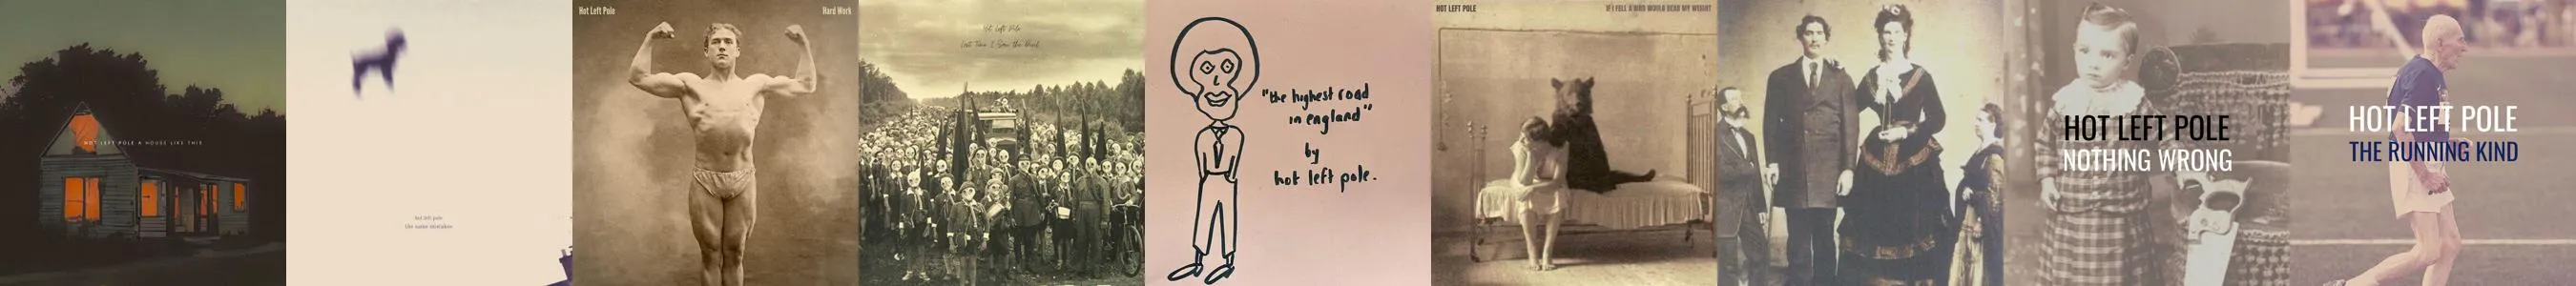 HOT LEFT POLE A HOUSE LIKE THIS
hot left pole
the same mistakes
Hot Left Pole
Hard Work
Hot Left Pole
Last Time I Saw the Wind
"the highest road
in england"
by
hot left pole.
HOT LEFT POLE
IF I FELL A BIRD WOULD BEAR MY WEIGHT
HOT LEFT POLE
NOTHING WRONG
HOT LEFT POLE
THE RUNNING KIND